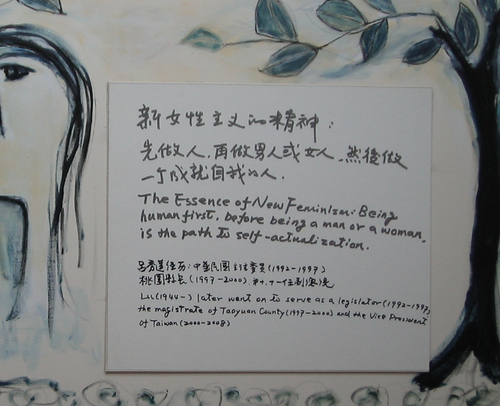 新女性主义的精神：
先做人，再做男人或女人，然後做
一个成就自我的人．
The Essence of New Feminism: Being
human first, before being a man or a woman,
is the path to self-actualization.
呂秀蓮任历：中華民國立法委員(1992-1997)
桃園縣長(1997-2000)
Lu(1944- ) later went on to serve as a legislator (1992-1997),
the magistrate of Taoyuan County (1997-2000) and the Vice President
of Taiwan (2000-2008)